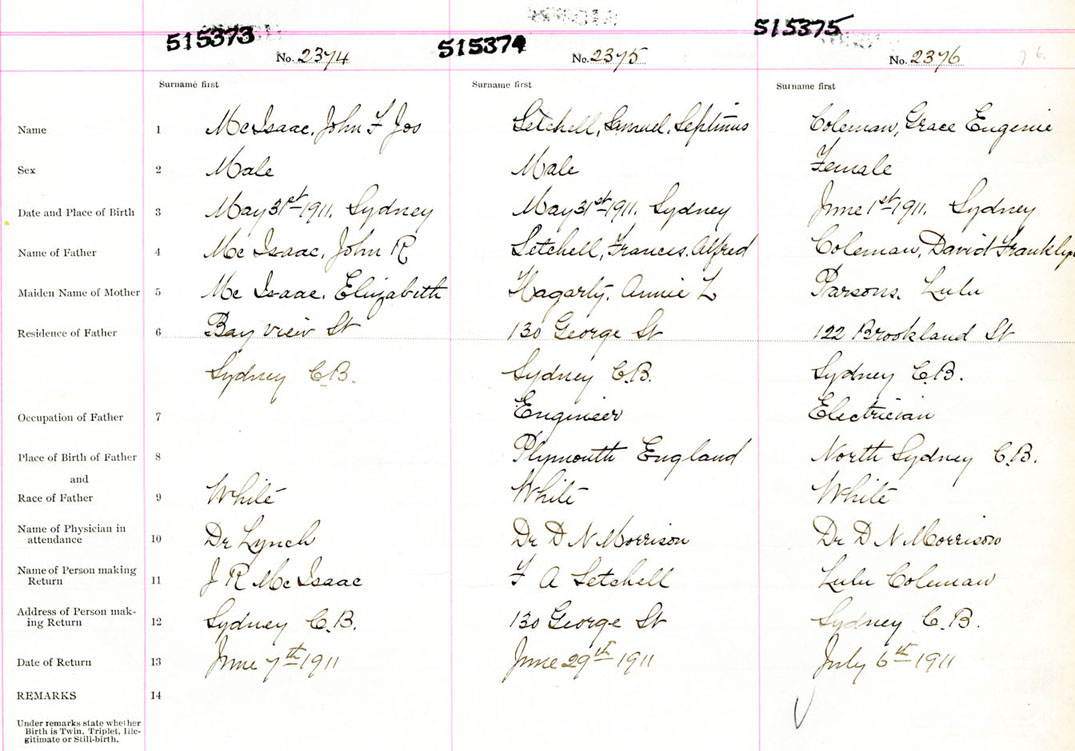 515373 515374 515375
No. 2374 No. 2375 No. 2376 76
Surname first Surname first Surname first
Name 1 McIsaac, John F Jos Setchell, Samuel, Septimus Coleman, Grace Eugenie
Sex 2 Male Male Female
Date and Place of Birth 3 May 31st 1911. Sydney May 31st 1911. Sydney June 1st 1911. Sydney
Name of Father 4 Mc Isaac, John R Setchell, Frances. Alfred Coleman, David Franklyn
Maiden Name of Mother 5 Mc Isaac. Elizabeth Hagarty. Annie L Parsons. Lulu
Residence of Father 6 Bay view St 130 George St 122 Brookland St
Sydney C.B. Sydney C.B. Sydney C.B.
Occupation of Father 7 Engineer Electrician
Place of Birth of Father 8 Plymouth England North Sydney C.B.
and
Race of Father 9 White White White
Name of Physician in
attendance 10 Dr Lynch Dr D N Morrison Dr D N Morrison
Name of Person making
Return 11 J R Mc Isaac F A Setchell Lulu Coleman
Address of Person mak-
ing Return 12 Sydney C.B. 130 George St Sydney C.B.
Date of Return 13 June 7th 1911 June 29th 1911 July 6th 1911
REMARKS 14
Under remarks state whether
Birth is Twin, Triplet, Ille-
gitimate or Still-birth.